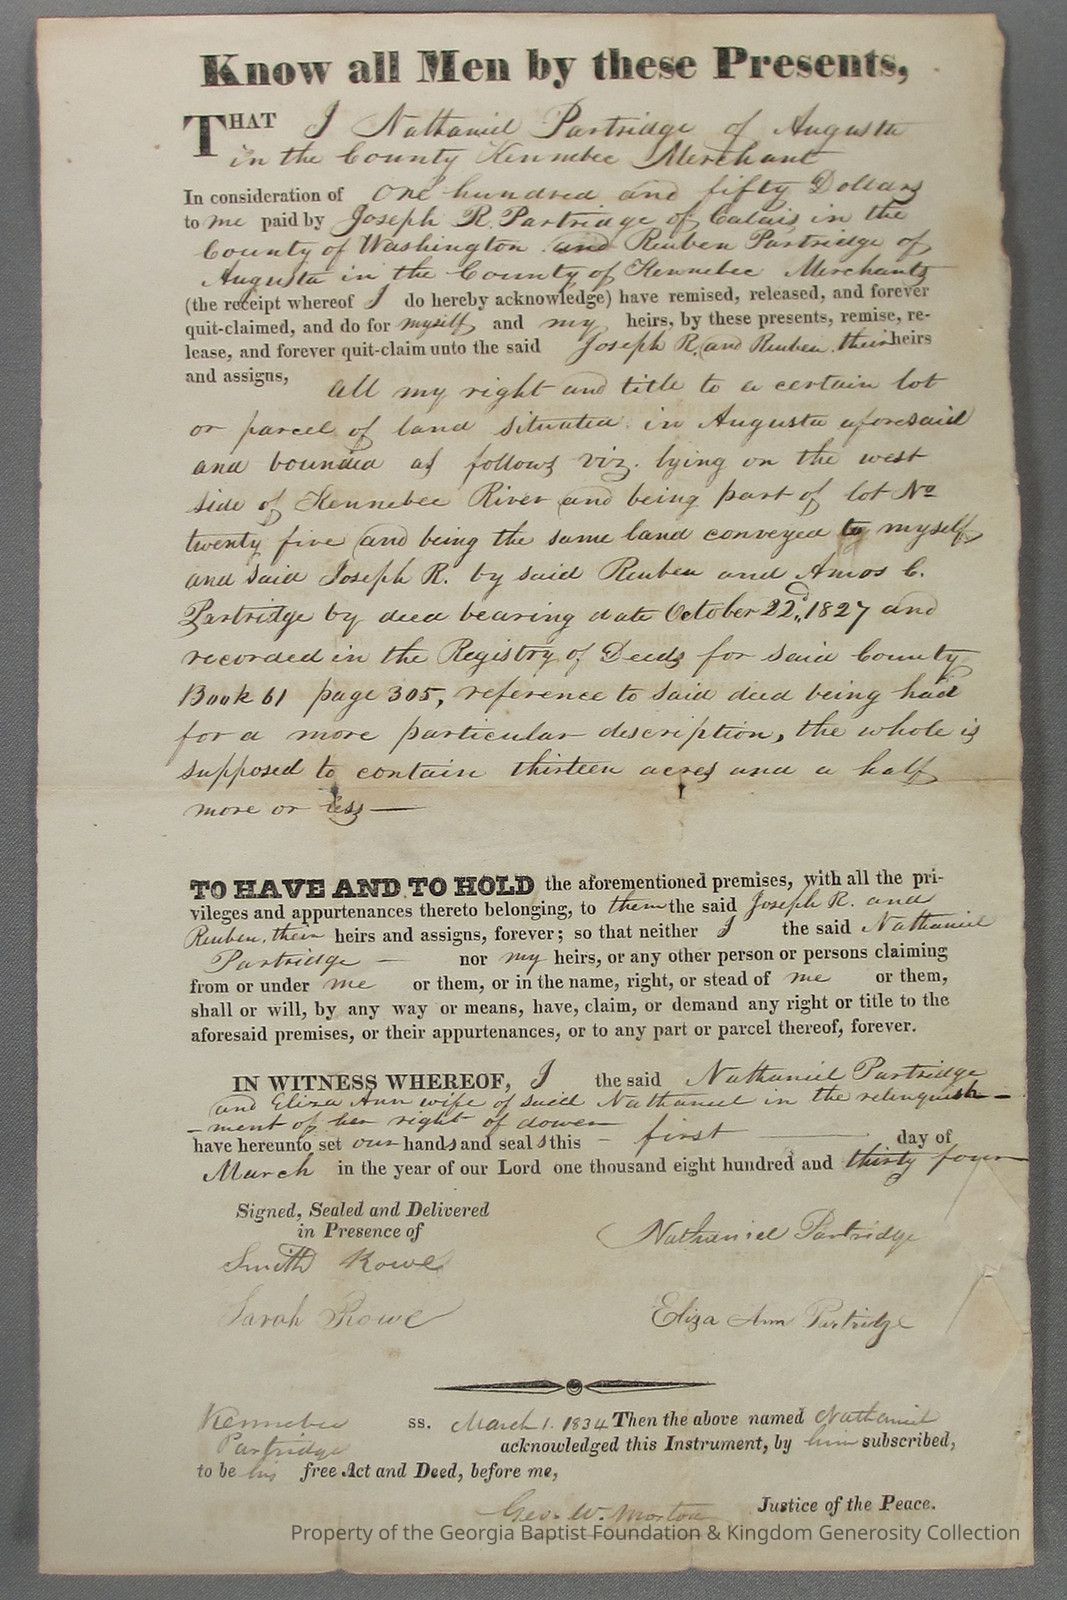 Know all Men by these Presents,
THAT I Nathaniel Partridge of Augusta
in the County Kennebec Merchant
In consideration of one hundred and fifty Dollars
to me paid by Joseph R. Partridge of Calais in the
County of Washington and Reuben Partridge of
Augusta in the County of Kennebec Merchants
(the receipt whereof I do hereby acknowledge) have remised, released, and forever
quit-claimed, and do for myself and my heirs, by these presents, remise, re-
lease, and forever quit-claim unto the said Joseph R. and Reuben, their heirs
and assigns, all my right and title to a certain lot
or parcel of land situated in Augusta aforesaid
and bounded as follows viz. lying on the west
side of Kennebec River and being part of lot No
twenty five and being the same land conveyed to myself
and said Joseph R. by said Reuben and Amos C.
Partridge by deed bearing date October 22d, 1827 and
recorded in the Registry of Deeds for said County
Book 61 page 305, reference to said deed being had
for a more particular description, the whole is
supposed to contain thirteen acres and a half
more or less —
TO HAVE AND TO HOLD the aforementioned premises, with all the pri-
vileges and appurtenances thereto belonging, to them the said Joseph R. and
Reuben, their heirs and assigns, forever; so that neither I the said Nathaniel
Partridge — nor my heirs, or any other person or persons claiming
from or under me or them, or in the name, right, or stead of me or them,
shall or will, by any way or means, have, claim, or demand any right or title to the
aforesaid premises, or their appurtenances, or to any part or parcel thereof, forever.
IN WITNESS WHEREOF, I the said Nathaniel Partridge
and Eliza Ann wife of said Nathaniel in the relinquish-
-ment of her right of dower
have hereunto set our hands and seals this — first — day of
March in the year of our Lord one thousand eight hundred and thirty four
Signed, Sealed and Delivered
in Presence of
Smith Rowe
Nathaniel Partridge
Sarah Rowe
Eliza Ann Partridge
Kennebec ss. March 1. 1834 Then the above named Nathaniel
Partridge acknowledged this Instrument, by him subscribed,
to be his free Act and Deed, before me,
Geo. W. Morton Justice of the Peace.
Property of the Georgia Baptist Foundation & Kingdom Generosity Collection